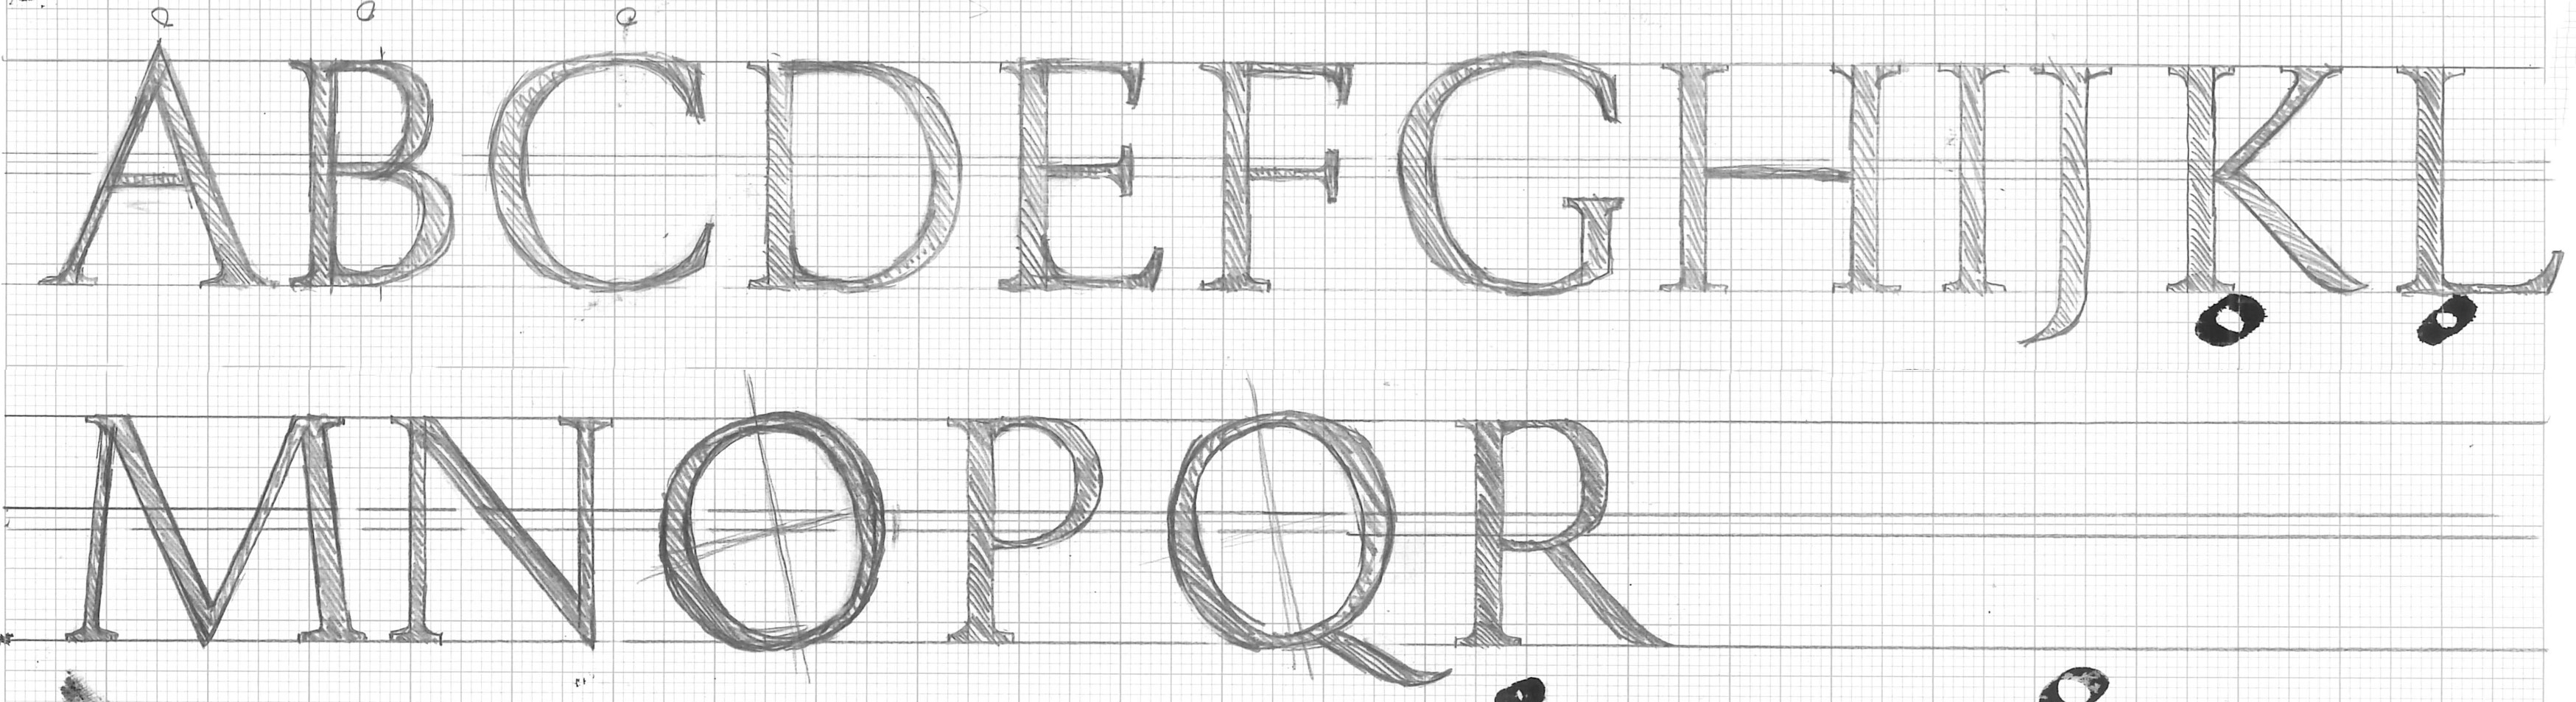 ABCDEFGHIJKL
MNOPQR